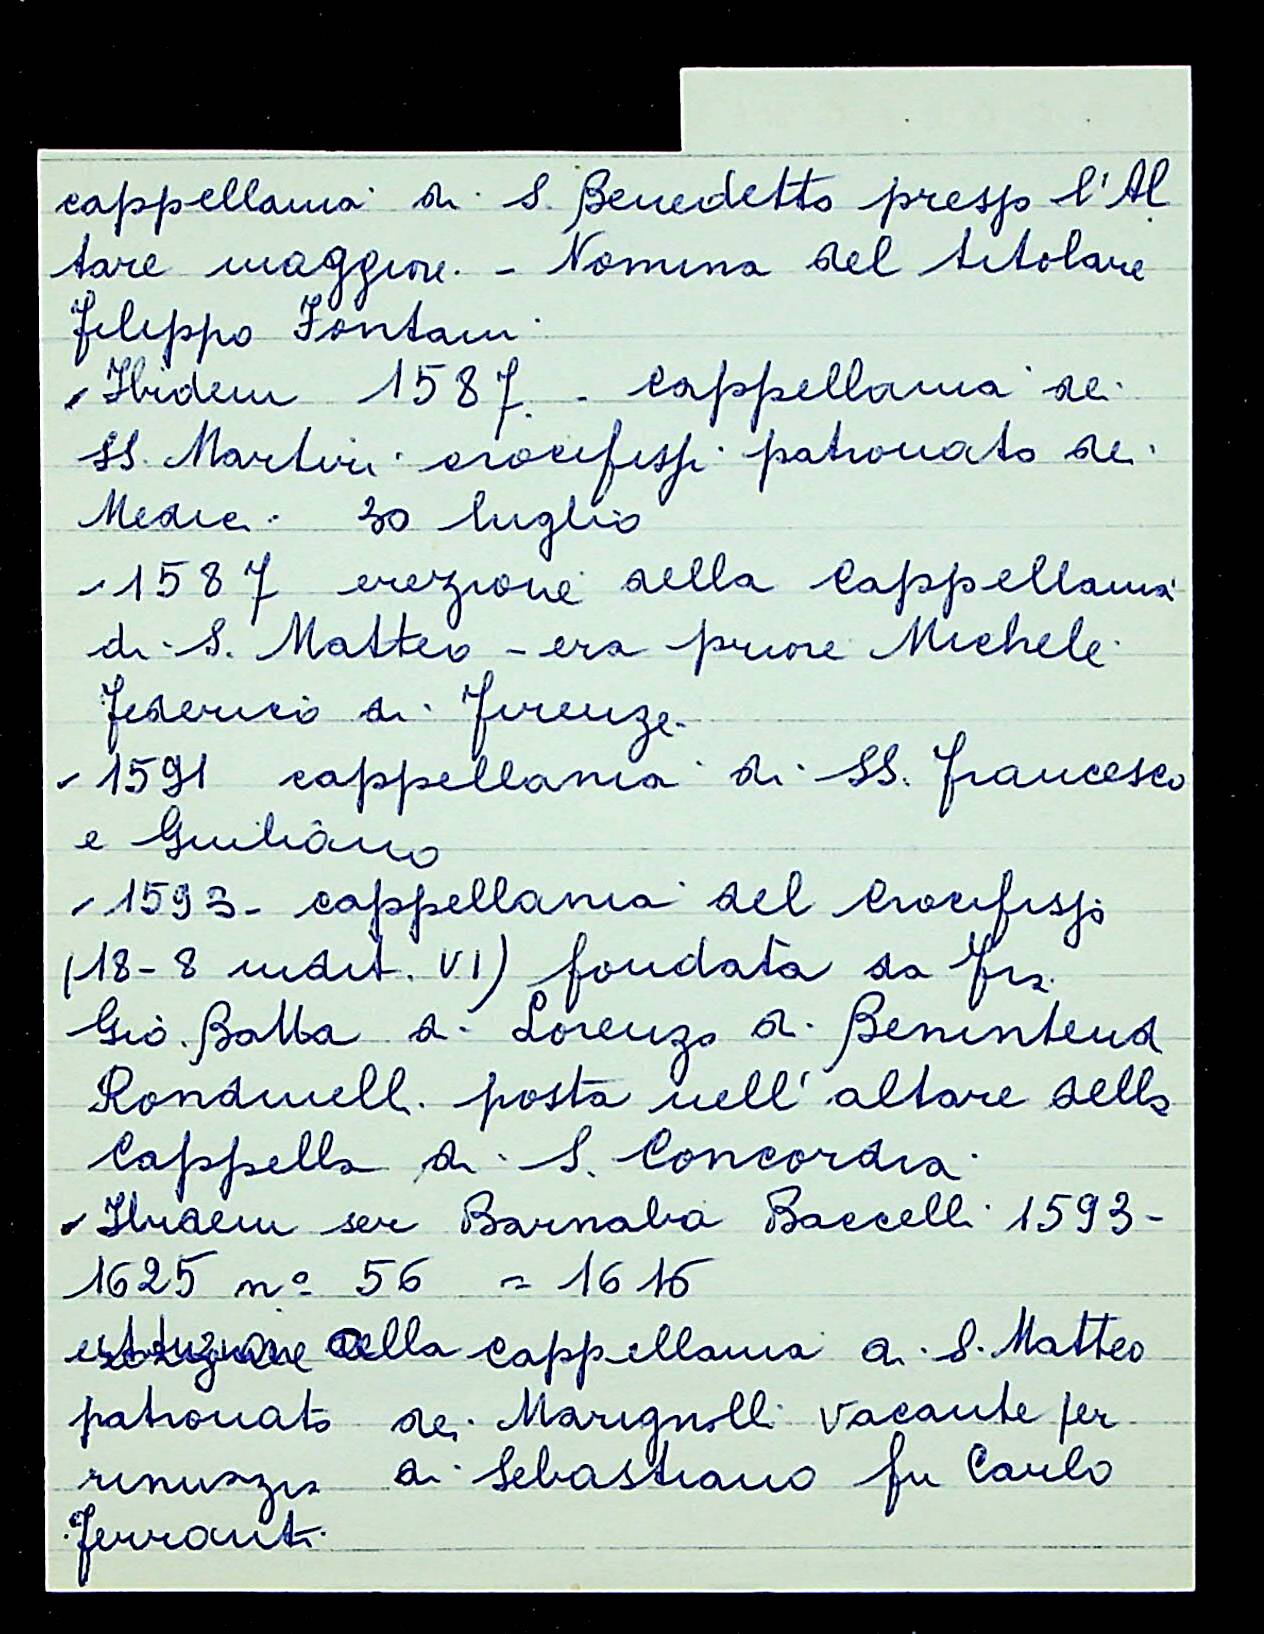 cappellania di S. Benedetto presso l'Al
tare maggiore. - Nomina del titolare
Filippo Fontani
- Ibidem 1587. - Cappellania dei
SS. Martiri crocifissi patronato dei
Medici. 30 luglio
- 1587 erezione della Cappellania
di S. Matteo - era priore Michele
Federici di Firenze.
- 1591 cappellania di SS. Francesco
e Giuliano
- 1593 - cappellania del Crocifisso
(18-8 indit. VI) fondata da Fra.
Giò. Batta di Lorenzo di Benintend
Rondinelli. posta nell'altare della
Cappella di S. Concordia.
- Ibidem ser Barnaba Baccelli 1593-
1625 nº 56 = 1616
istituzione della cappellania di S. Matteo
patronato dei Marignolli vacante per
rinunzia di Sebastiano fu Carlo
Ferranti.